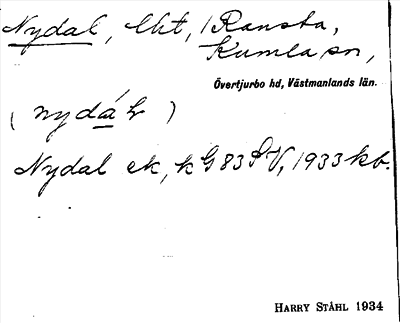 Nydal, lht, i Ransta,
Kumla sn,
Övertjurbo hd, Västmanlands län.
( nydáL )
Nydal ek, k G 83 SV, 1933 kb.
HARRY STÅHL 1934